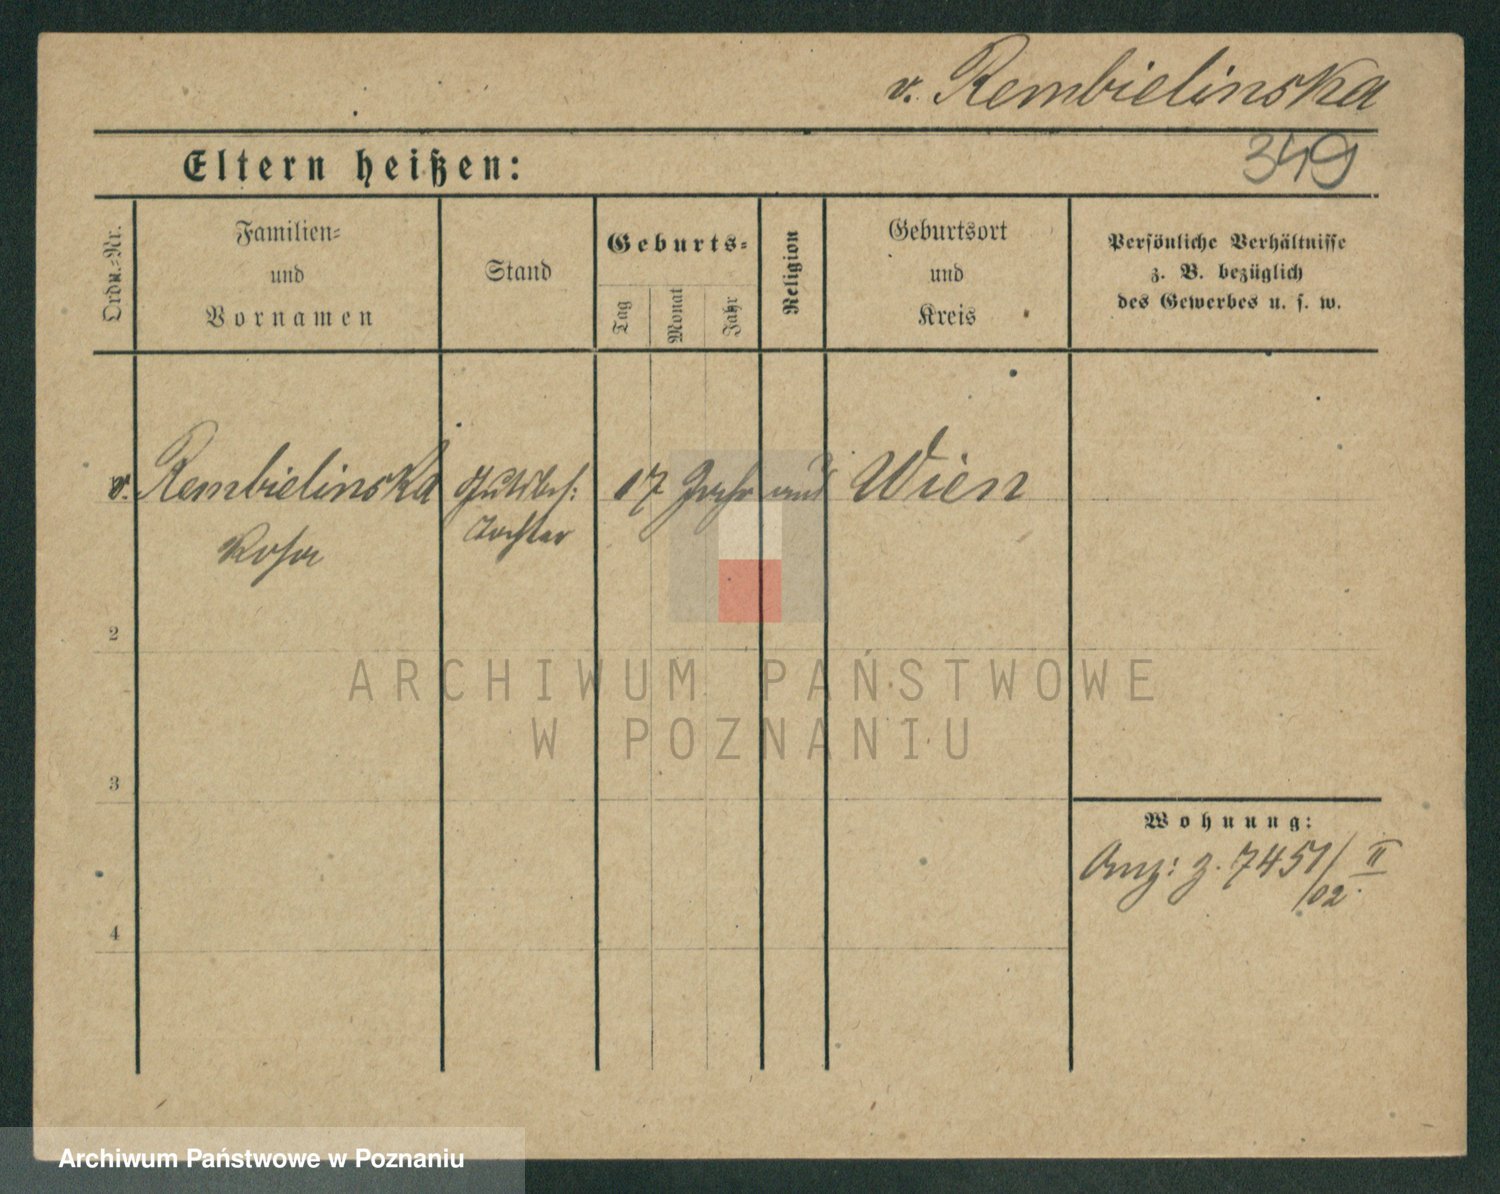 v. Rembielinska
Eltern heißen:
349
Ordn.-Nr.
Familien-
und
Vornamen
Stand
Geburts-
Tag
Monat
Jahr
Religion
Geburtsort
und
Kreis
Persönliche Verhältnisse
z. B. bezüglich
des Gewerbes u. s. w.
v. Rembielinska
Rosa
Gutsbes:
Tochter
17 Jahr aus Wien
2
3
4
Wohnung:
Anz: z. 7451/02 II
ARCHIWUM PAŃSTWOWE
W POZNANIU
Archiwum Państwowe w Poznaniu